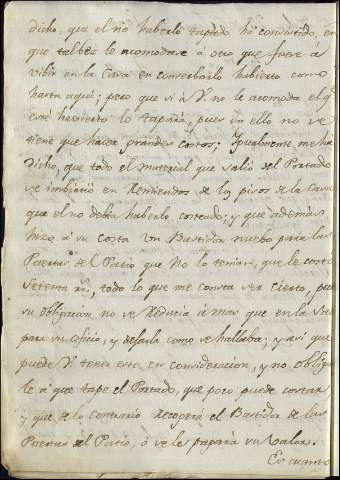 dicho, que el no haberlo tapado ha consistido, en
que talbes le acomodase à otro que fuese à
vibir en la Casa en conserbarlo habierto como
hasta aqui; pero que si à V. no le acomoda el q.
esté havierto lo tapará, pues en ello no se
tiene que hacer grandes costos; Igualmente me ha
dicho, que todo el material que salió del Portado
se imbirtió en Remiendos de los pisos de la Casa
que el no debia haberlo costeado; y que además
hizo à su costa un Bastidor nuebo para las
Puertas del Patio que no lo tenian, que le costó
setenta rr.s, todo lo que me consta ser cierto, pues
su obligacion no se reducia à mas que en la
para su oficio, y dejarla como se hallaba; y asi que
puede V. tener esto en consideracion, y no obligar
le à que tape el Portado, que poco puede costar
y que de lo contrario recogerá el Bastidor de las
Puertas del Patio, ó se le pagará su valor.
En cuanto